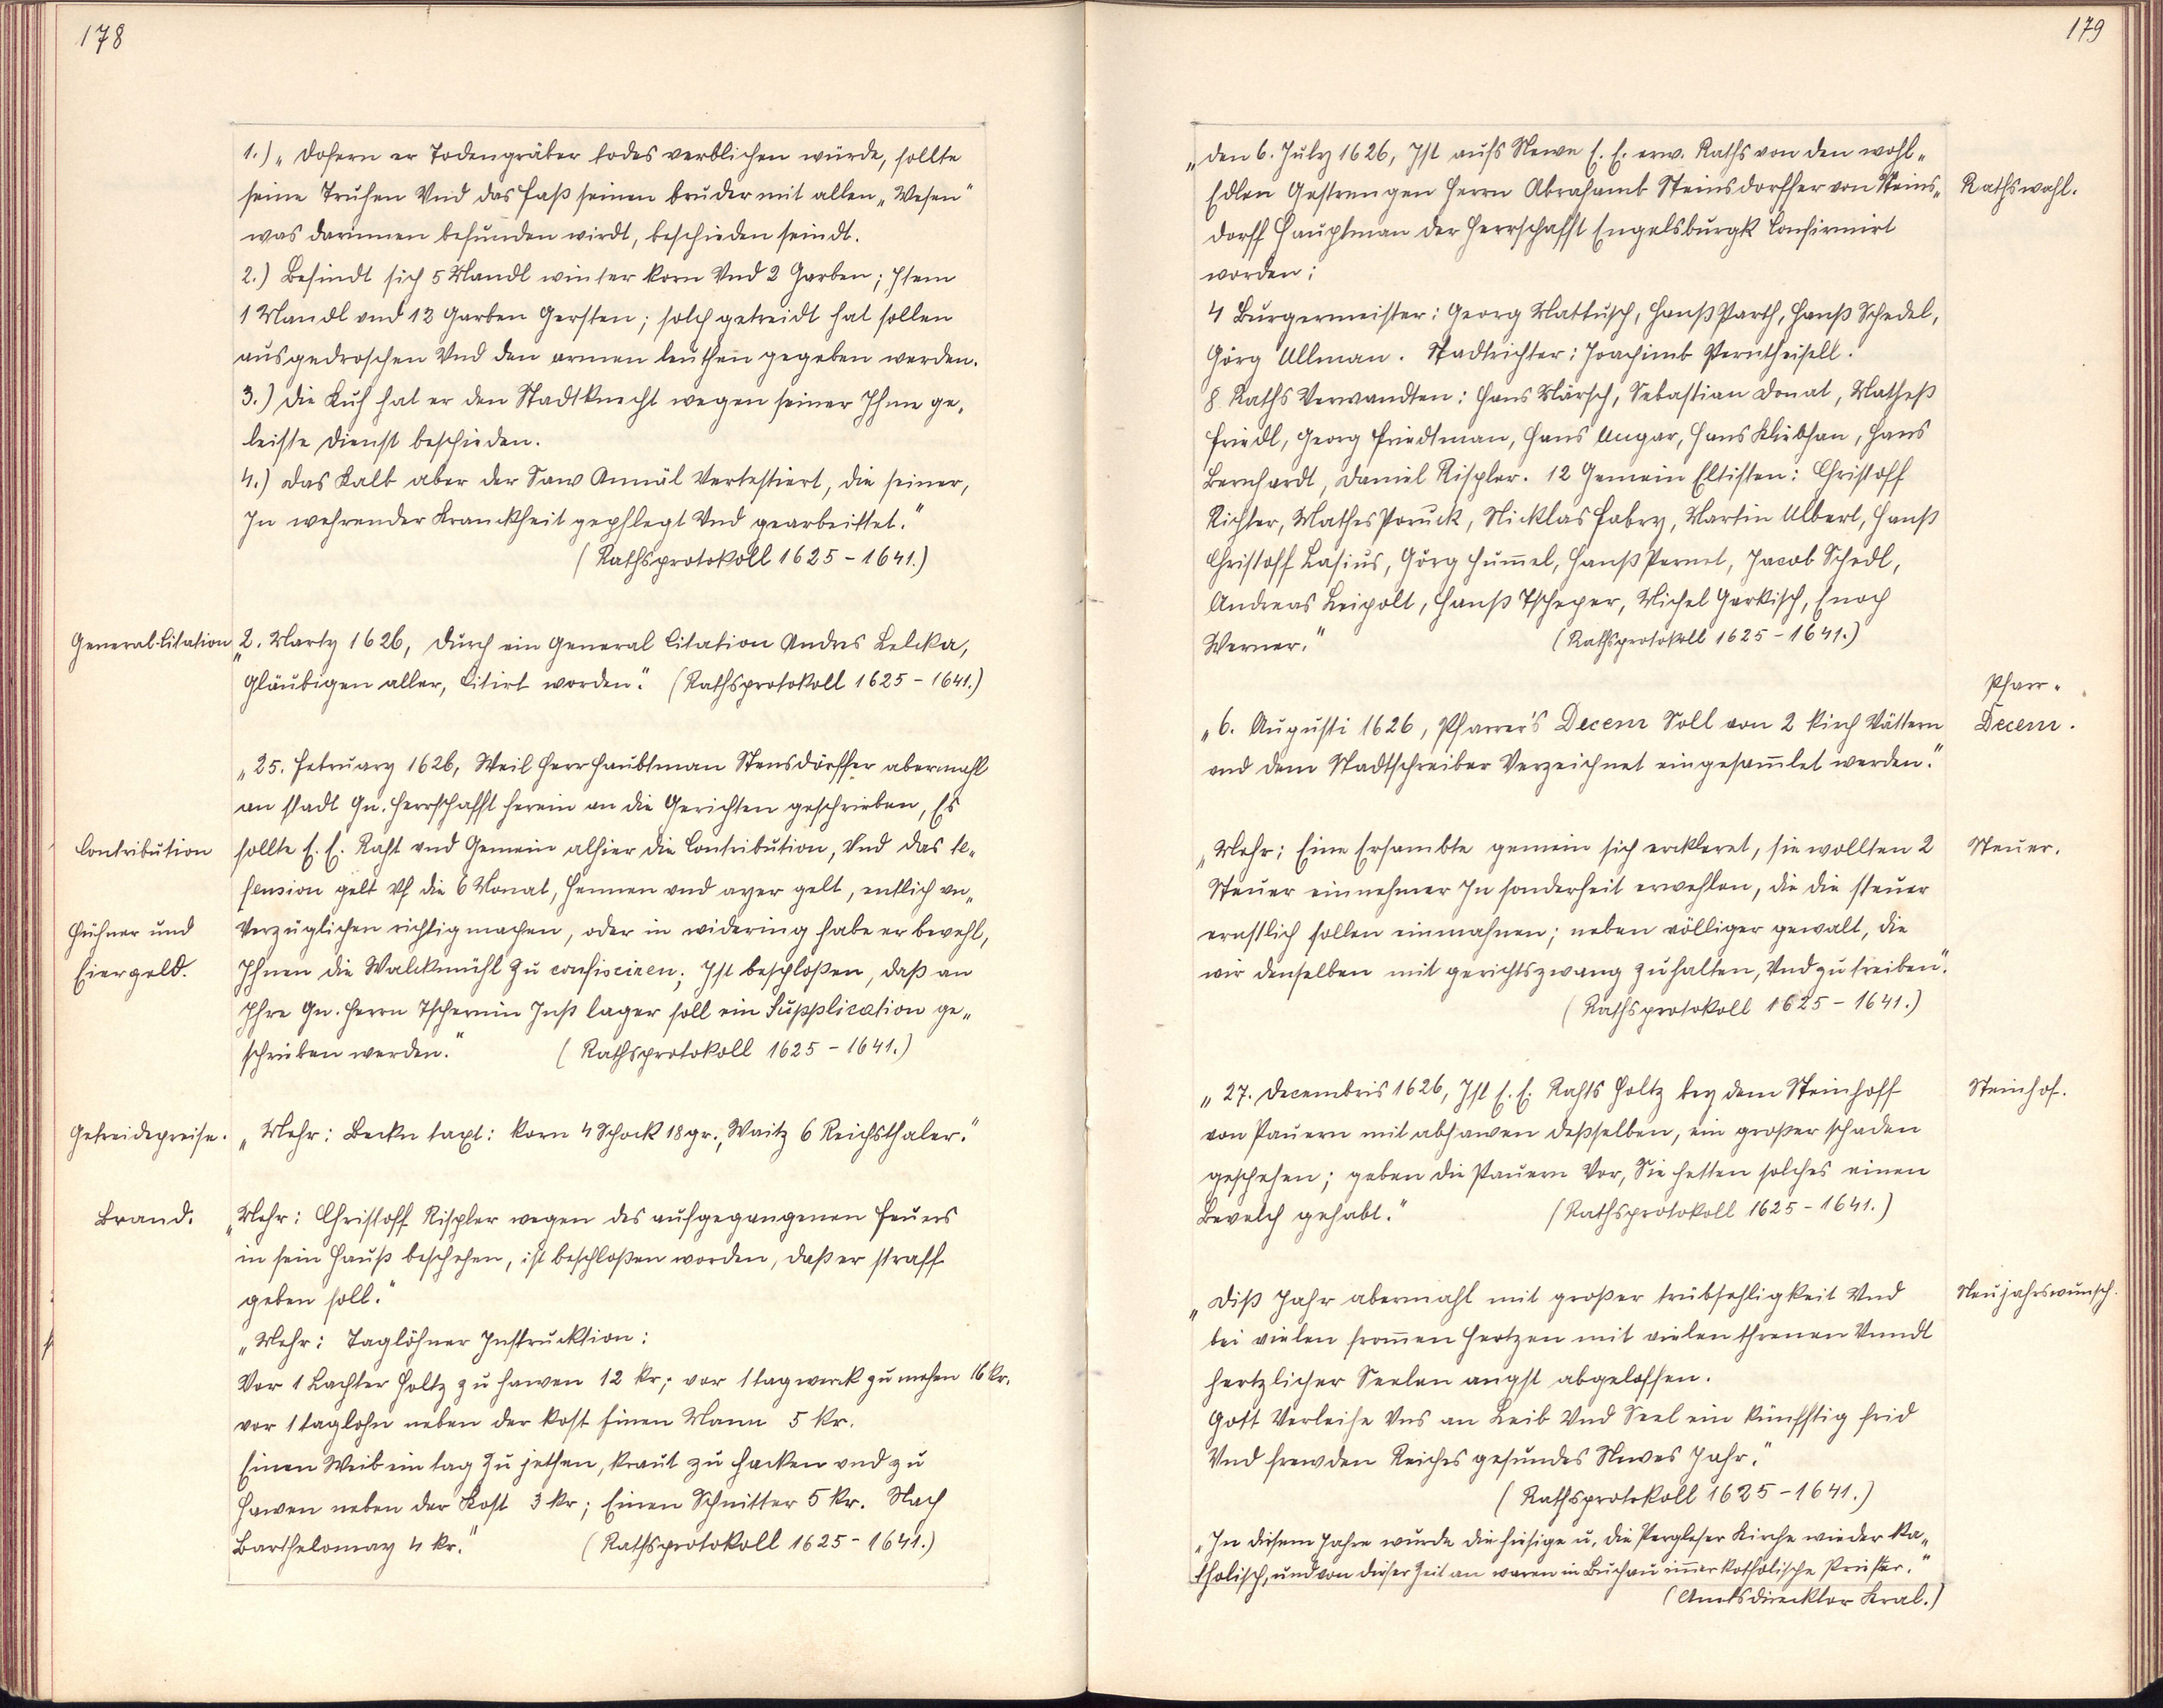 178
1.) „Dofern er Todengräber todes verblichen würde, sollte
seine Truhen Vnd das faß seinen bruder mit allen „Wesen"
was darinnen befunden wirdt, beschieden seindt.
2.) Befindt sich 5 Mandl winter korn Vnd 2 Garben; Item
1 Mandl vnd 13 Garben Gersten; solch getreidt hat sollen
ausgedroschen Vnd den armen leuthen gegeben werden.
3.) Die Kuh hat er den Stadtknecht wegen seiner Ihme ge„
leiste Dienst beschieden.
4.) Das Kalb aber der Saw Annäl Vertestiert, die seiner,
In wehrender Kranckheit gepflegt Vnd gearbeittet."
(Rathsprotokoll 1625 - 1641.)
General-Citation
„2. Marty 1626, Durch ein General Citation Andres Lelcka,
Gläubigen aller, Citirt worden." (Rathsprotokoll 1625 - 1641.)
„25. February 1626, Weil Herr Haubtman Stensdörffer abermahl
an stadt Gn. Herrschafft herein an die Gerichten geschrieben, Es
Contribution
sollte E. E. Raht vnd Gemein alhier die Contribution, Vnd das te„
fension gelt Vf die 6 Monat, Hennen vnd ayer gelt, entlich vn„
Hühner und
Verzüglichen richtig machen, oder in widering habe er bevehl,
Eiergeld.
Ihnen die Walckmühl zu confisciren; Ist beschloßen, daß an
Ihre Gn. Herrn Tschernin Inß lager soll ein Supplication ge„
schrieben werden." (Rathsprotokoll 1625 - 1641.)
Getreidepreise.
„Mehr: Becken taxt: Korn 4 Schock 18 gr., Waitz 6 Reichsthaler."
Brand.
„Mehr: Christoff Rißpler wegen des aufgegangenen Feuers
in sein Hauß beschehen, ist beschloßen worden, daß er straff
geben soll."
„Mehr: Taglöhner Instrucktion:
Vor 1 Lachter Holtz zu hawen 12 kr; vor 1 tagwerck zu mehen 16 kr.
vor 1 taglohn neben der kost Einen Mann 5 kr.
Einen Weib ein tag zu jethen, kraut zu hacken vnd zu
hawen neben der Kost 3 kr; Einen Schnitter 5 kr. Nach
Barthelomay 4 kr." (Rathsprotokoll 1625 - 1641.)
179
„Den 6. July 1626, Ist aufs Newe E. E. erw. Raths von den wohl„
Edlen Gestrengen Herrn Abrahamb Steinsdorffer von Steins„
Rathswahl.
dorff Hauptman der Herrschafft Engelsburgk Confirmirt
worden:
4 Burgermeister: Georg Mattusch, Hanß Parth, Hanß Schedel,
Görg Ullman. Stadtrichter: Joachimb Perntheisell.
8 Raths Verwandten: Hans Märsch, Sebastian Donat, Matheß
Friedl, Georg Friedtman, Hans Ungar, Hans Kliebhan, Hans
Bernhardt, Daniel Rispler. 12 Gemein Eltisten: Christoff
Richter, Mathes Poruck, Nicklas Fabry, Martin Albert, Hanß
Christoff Lasius, Görg Hum̅el, Hanß Pernet, Jacob Schedl,
Andreas Leipolt, Hanß Tscheper, Michel Garkisch, Enoch
Werner." (Rathsprotokoll 1625 - 1641.)
Pfarr-
Decem.
„6. Augusti 1626, Pfarrer's Decem Soll von 2 kirch Vättern
vnd dem Stadtschreiber Verzeichnet eingesam̅let werden."
„Mehr: Eine Ersambte gemein sich erckleret, sie wollten 2
Steuer.
Steuer einnehmer In sonderheit erwehlen, die die steuer
ernstlich sollen einmahnen; neben völliger gewalt, die
wir denselben mit gerichtszwang zuhalten, Vnd zu treiben."
(Rathsprotokoll 1625 - 1641.)
„27. Decembris 1626, Ist E. E. Rahts Holtz bey dem Steinhoff
Steinhof.
von Pauern mit abhawen deßselben, ein großer schaden
geschehen; geben die Pauern Vor, Sie hetten solches einen
Bevelch gehabt." (Rathsprotokoll 1625 - 1641.)
„Diß Jahr abermahl mit großer trübsehligkeit Vnd
Neujahrswunsch.
bei vielen from̅en Hertzen mit vielen threnen Vnndt
hertzlicher Seelen angst abgeloffen.
Gott Verleihe Vns an Leib Vnd Seel ein künfftig frid
Vnd frewden Reiches gesundes Newes Jahr."
(Rathsprotokoll 1625 - 1641.)
„In diesem Jahre wurde die hiesige u. die Pergleser Kirche wieder ka„
tholisch, und von dieser Zeit an waren in Buchau im̅er katholische Priester."
(Amtsdirecktor Kral.)